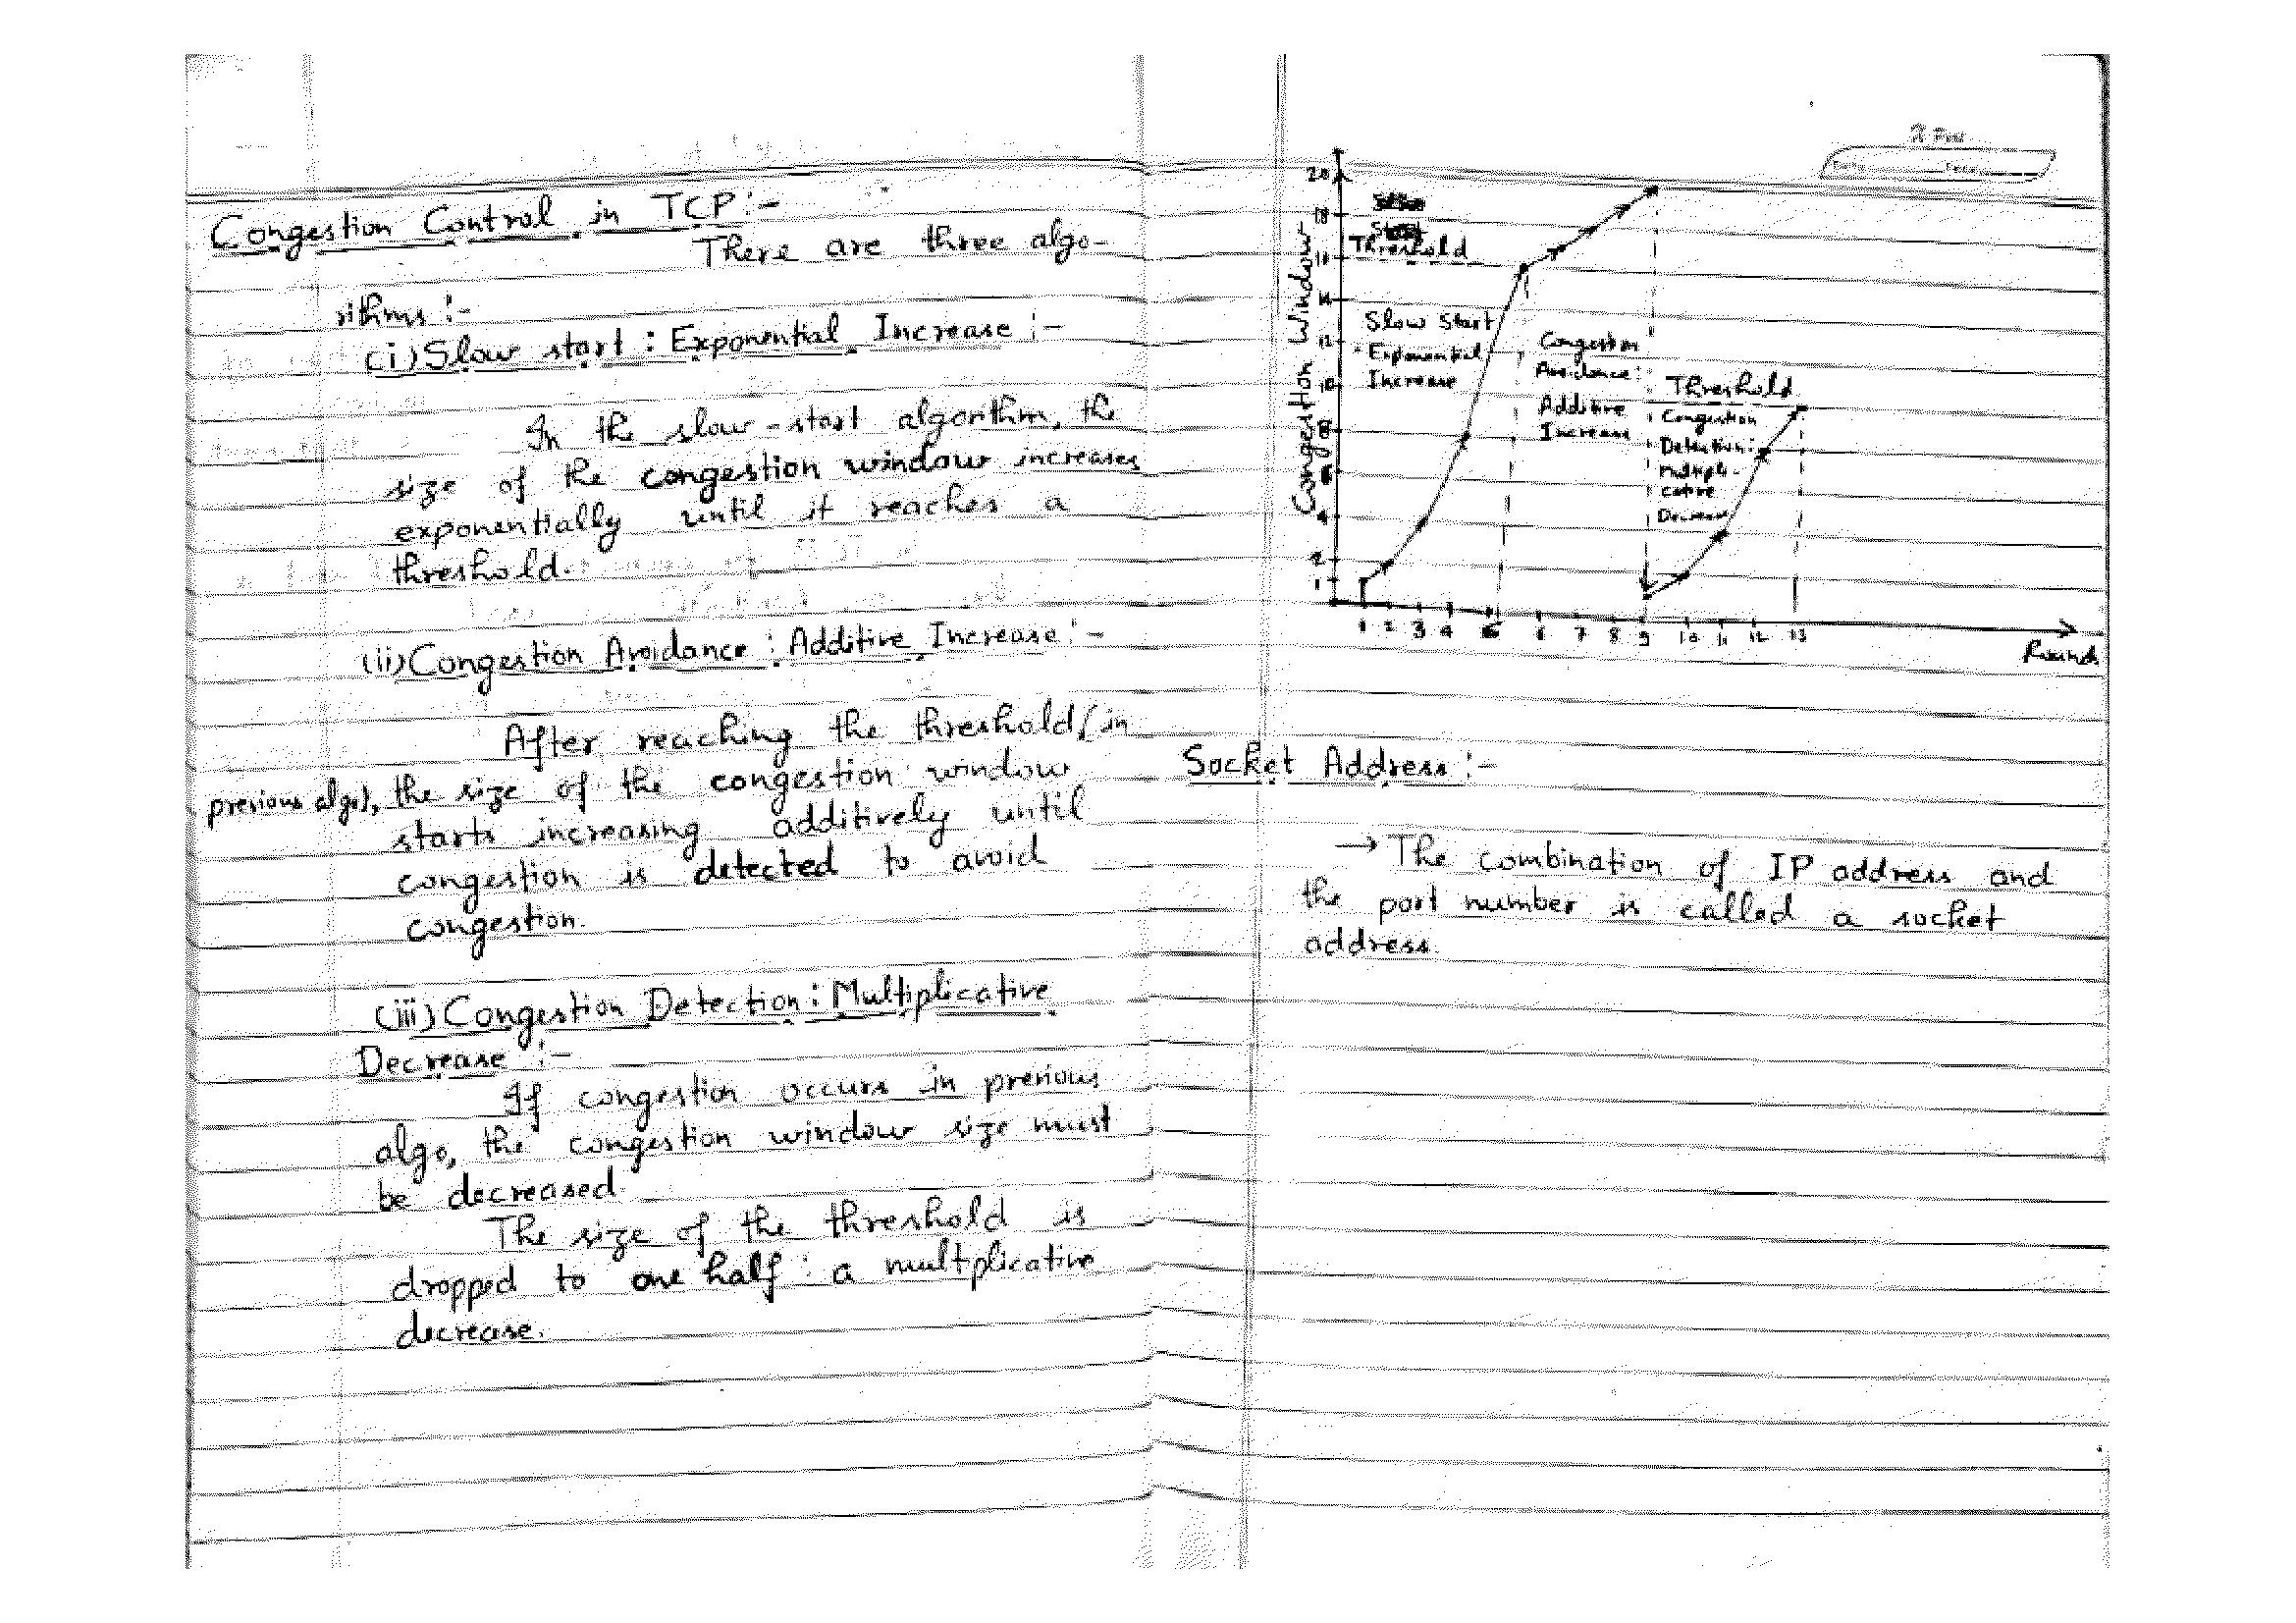 Congestion Control in TCP :-
There are three algo-
rithms :-
(i) Slow start : Exponential Increase :-
In the slow-start algorithm, the
size of the congestion window increases
exponentially until it reaches a
threshold.
(ii) Congestion Avoidance : Additive Increase :-
After reaching the threshold (in
previous algo), the size of the congestion window
starts increasing additively until
congestion is detected to avoid
congestion.
(iii) Congestion Detection : Multiplicative
Decrease :-
If congestion occurs in previous
algo, the congestion window size must
be decreased
The size of the threshold is
dropped to one half : a multplicative
decrease.
Congestion Window
20
18
16
14
12
10
8
6
4
2
1
Threshold
Slow Start
Exponential
Increase
Congestion
Avoidance:
Additive
Increase
Threshold
Congestion
Detection:
Multipli-
cative
Decrease
1 2 3 4 5 6 7 8 9 10 11 12 13
Rounds
Socket Address :-
→ The combination of IP address and
the port number is called a socket
address.